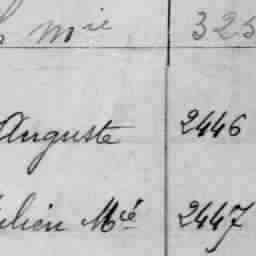 mie 325
Auguste 2446
Mié 2447